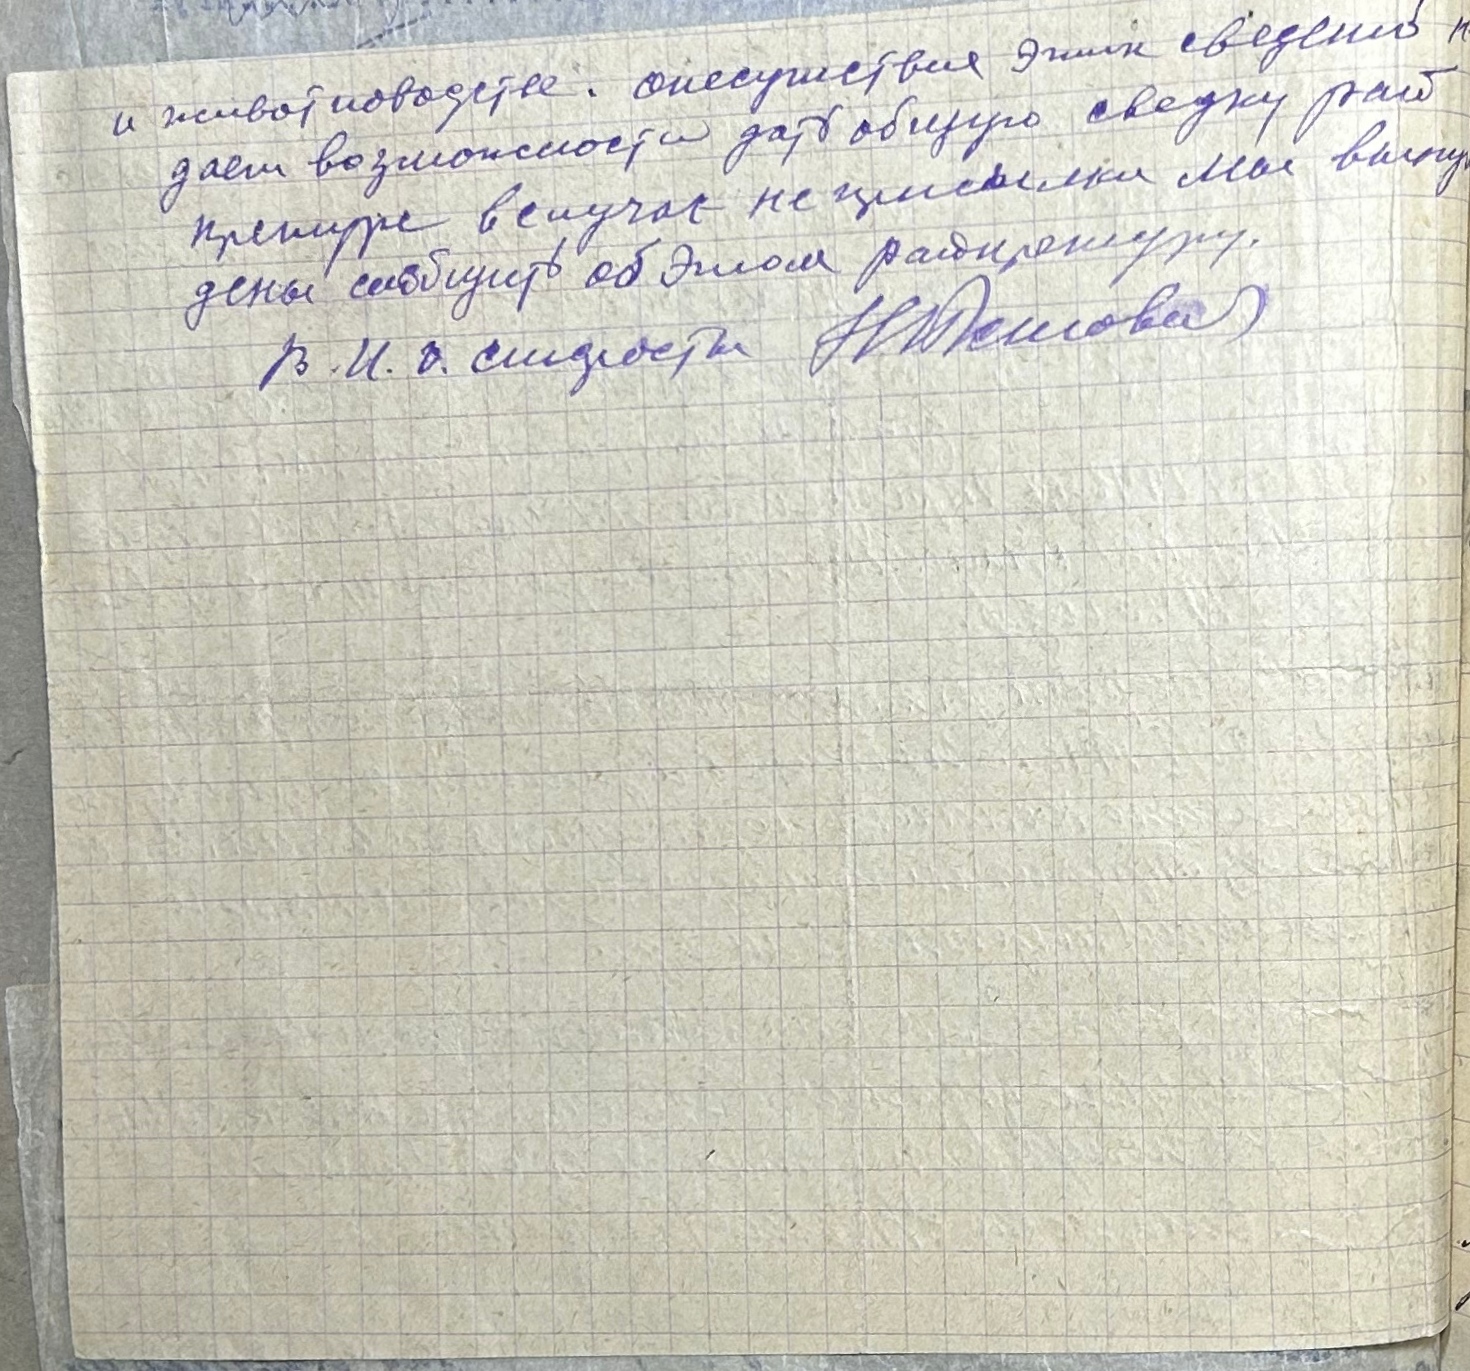 и животноводстве. отсуствия этих сведений н
дает возможности дать общую сведку рай
прокурору в случае не присылки мы вынуж
дены сообщить об этом райпрокурору.
В.И.О.